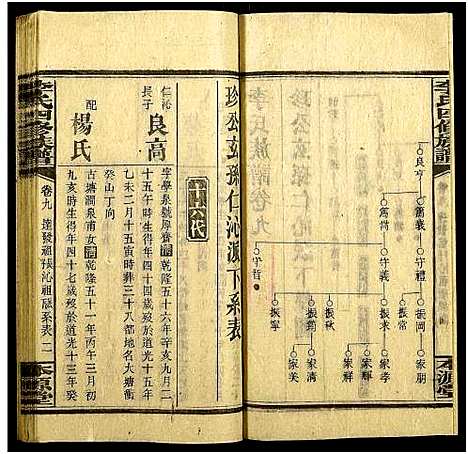 李氏四修族譜
本源堂
良亨
篤義
篤尚
守禮
守義
守哲
振岡
振常
振求
振秋
振甯
家朋
家孝
家輝
家祥
家清
家美
珍公玄孫仁沁派下系表
十六代
仁沁
長子
良高
字學泉號厚齋清乾隆五十六年辛亥九月二
十五午時生得年四十四歲歿於道光十五年
乙未二月十五寅時葬三十八都地名大塘衝
癸山丁向
配
楊氏
古塘澗泉甫女清乾隆五十一年丙午三月初
九亥時生得年四十七歲歿於道光十三年癸
李氏四修族譜
卷九
達發祖扶沁祖派系表
二
本源堂